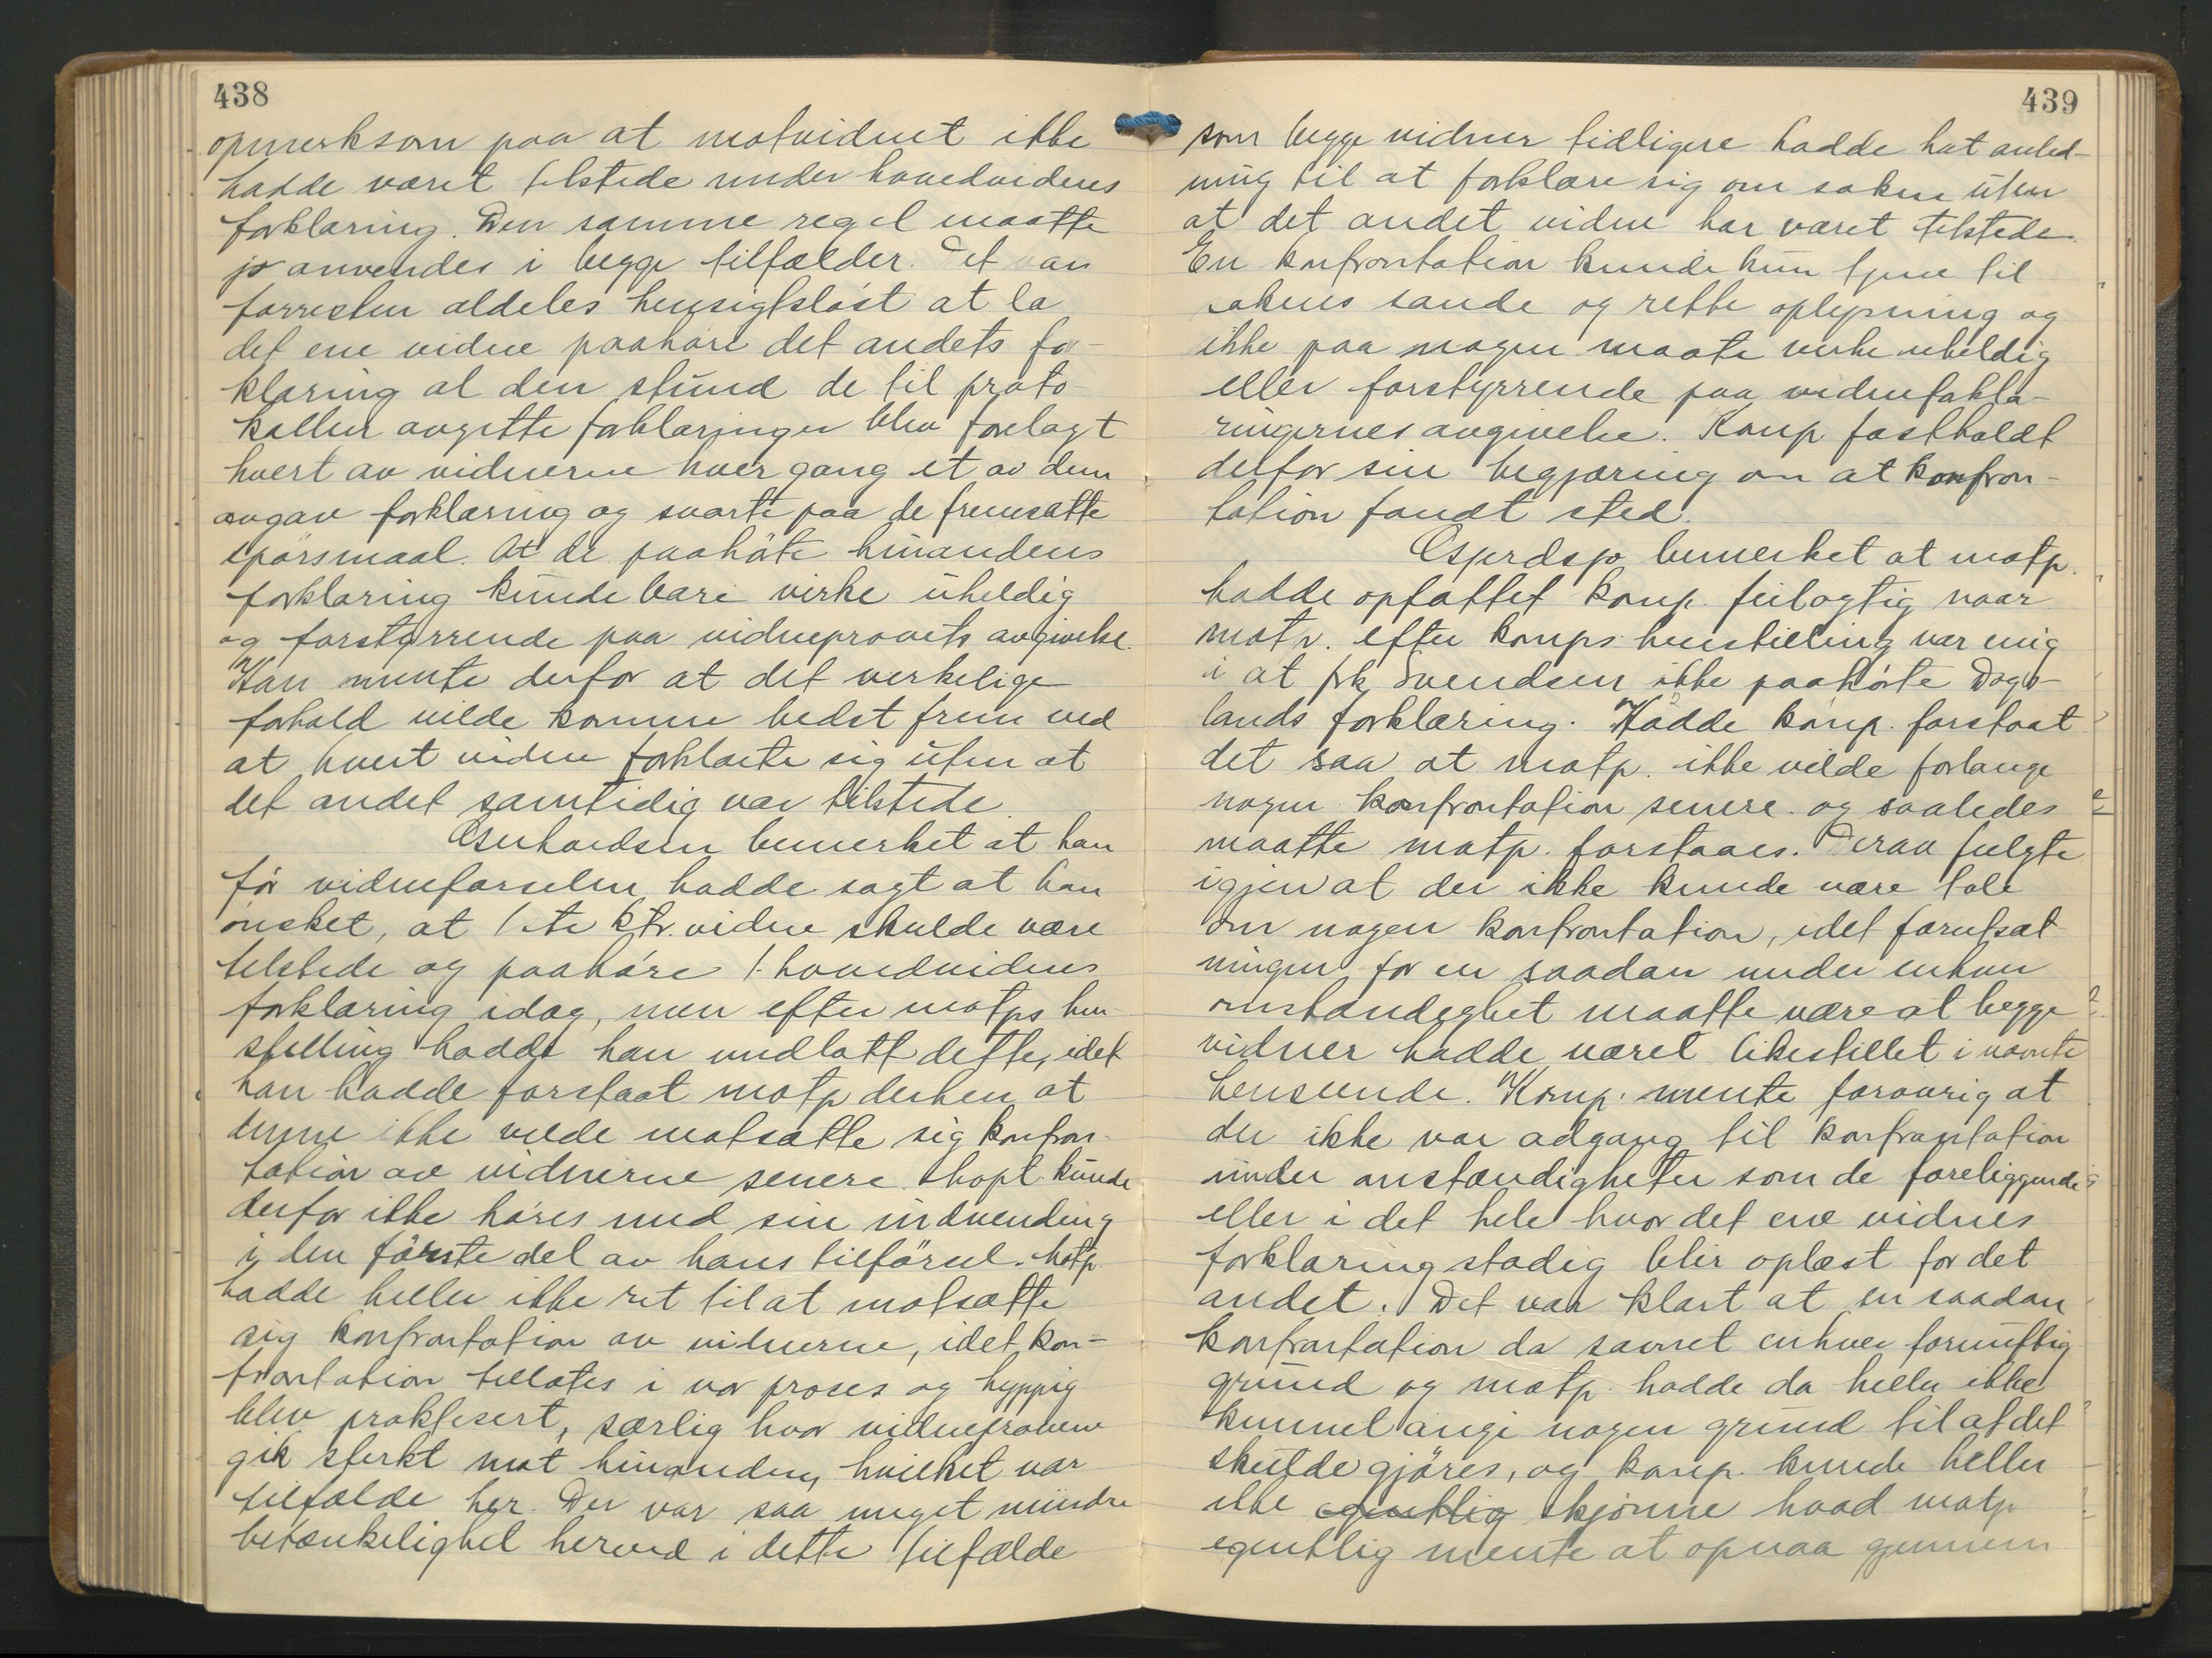 438
opmerksom paa at motvidnet ikke
hadde været tilstede under hovedvidnets
forklaring. Den samme regel maatte
jo anvendes i begge tilfælder. Det var
forresten aldeles hensigtsløst at la
det ene vidne paahøre det andets for-
klaring al den stund de til proto-
kollen avgitte forklaringer blev forelagt
hvert av vidnerne hver gang et av dem
avgav forklaring og svarte paa de fremsatte
spørsmaal. At de paahørte hinandens
forklaring kunde bare virke uheldig
og forstyrrende paa vidneprovets avgivelse.
Han mente derfor at det verkelige
forhold vilde komme bedst frem ved
at hvert vidne forklarte sig uten at
det andet samtidig var tilstede.
bemerket at han
før vidneførselen hadde sagt at han
ønsket, at 1ste ktr. vidne skulde være
tilstede og paahøre 1. hovedvidnes
forklaring idag, men efter motps hen-
stilling hadde han undlatt dette, idet
han hadde forstaat motp derhen at
denne ikke vilde motsætte sig konfron-
tation av vidnerne senere. Motp. kunde
derfor ikke høres med sin indvending
i den første del av hans tilførsel. Motp.
hadde heller ikke ret til at motsætte
sig konfrontation av vidnerne, idet kon-
frontation tillates i vor proses og hyppig
blev praktisert, særlig hvor vidneprovene
gik sterkt mot hinanden, hvilket var
tilfælde her. Der var saa meget mindre
betænkelighet herved i dette tilfælde
439
som begge vidner tidligere hadde hat anled-
ning til at forklare sig om saken uten
at det andet vidne har været tilstede.
En konfrontation kunde kun tjene til
sakens sande og rette oplysning og
ikke paa nogen maate virke uheldig
eller forstyrrende paa vidneforkla-
ringernes avgivelse. Komp fastholdt
derfor sin begjæring om at konfron-
tation fandt sted.
bemerket at motp.
hadde opfattet komp. feilagtig naar
motp. efter komps henstilling var enig
i at frk Svendsen ikke paahørte Dags-
lands forklaring. Hadde komp. forstaat
det saa at motp. ikke vilde forlange
nogen konfrontation senere og saaledes
maatte motp. forstaaes. Derav fulgte
igjen at der ikke kunde være tale
om nogen konfrontation, idet forutsæt-
ningen for en saadan under enhver
omstændighet maatte være at begge
vidner hadde været likestillet i nævnte
henseende. Komp. mente forøvrig at
der ikke var adgang til konfrontation
under omstændigheter som de foreliggende
eller i det hele hvor det ene vidnes
forklaring stadig blir oplæst for det
andet. Det var klart at en saadan
konfrontation da savnet enhver fornuftig
grund og motp. hadde da heller ikke
kunnet angi nogen grund til at det
skulde gjøres, og komp. kunde heller
ikke egentlig skjønne hvad motp
egentlig mente at opnaa gjennem